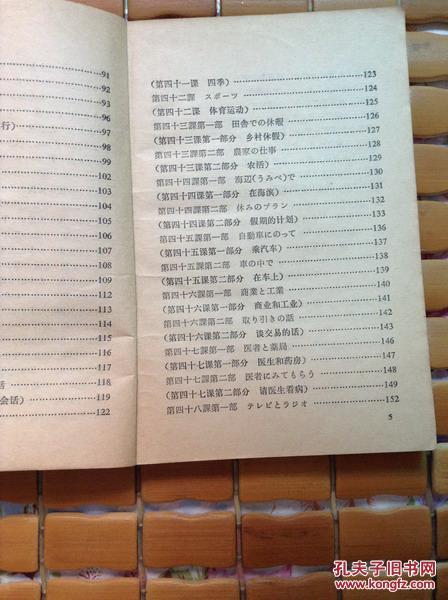 91
92
93
96
行)
102
103
104
105
107
108
110
112
114
115
116
117
话 118
会话) 119
122
(第四十一课 四季) 123
第四十二課 スポーツ 124
(第四十二课 体育运动) 125
第四十三課第一部 田舎での休暇 126
(第四十三课第一部分 乡村休假) 127
第四十三課第二部 農家の仕事 128
(第四十三课第二部分 农活) 129
第四十四課第一部 海辺(うみべ)で 130
(第四十四课第一部分 在海滨) 131
第四十四課第二部 休みのプラン 132
(第四十四课第二部分 假期的计划) 133
第四十五課第一部 自動車にのって 136
(第四十五课第一部分 乘汽车) 137
第四十五課第二部 車の中で 138
(第四十五课第二部分 在车上) 139
第四十六課第一部 商業と工業 140
(第四十六课第一部分 商业和工业) 141
第四十六課第二部 取り引きの話 142
(第四十六课第二部分 谈交易的话) 143
第四十七課第一部 医者と薬局 146
(第四十七课第一部分 医生和药房) 147
第四十七課第二部 医者にみてもらう 148
(第四十七课第二部分 请医生看病) 149
第四十八課第一部 テレビとラジオ 152
5
孔夫子旧书网
www.kongfz.com